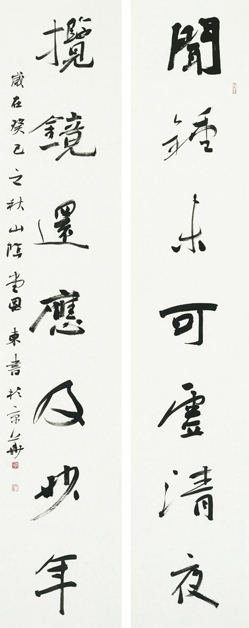 聞鍾未可虛清夜
攬鏡還應及妙年
歲在癸巳之秋山陰
東書於京華